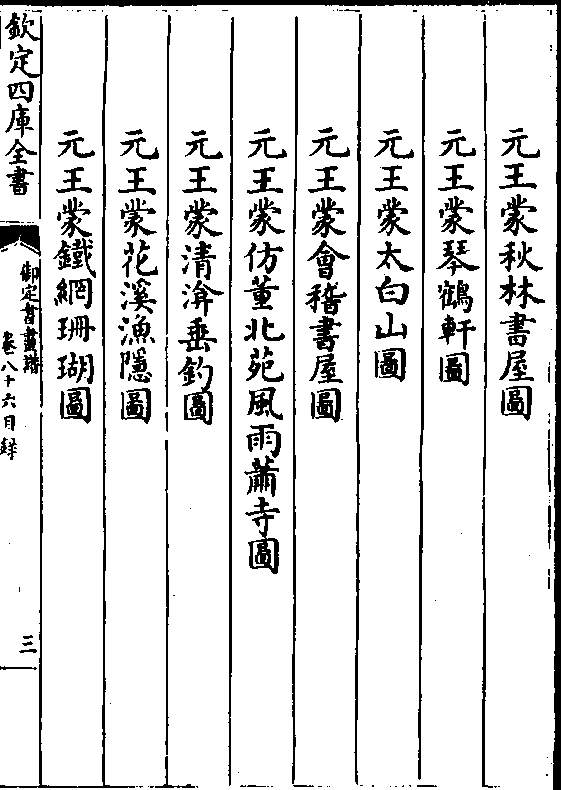 元王蒙秋林書屋圖
元王蒙琴鶴軒圖
元王蒙太白山圖
元王蒙會稽書屋圖
元王蒙仿董北苑風雨蕭寺圖
元王蒙清渰垂釣圖
元王蒙花溪漁隱圖
元王蒙鐵網珊瑚圖
欽定四庫全書
御定書畫譜
卷八十六目錄
三